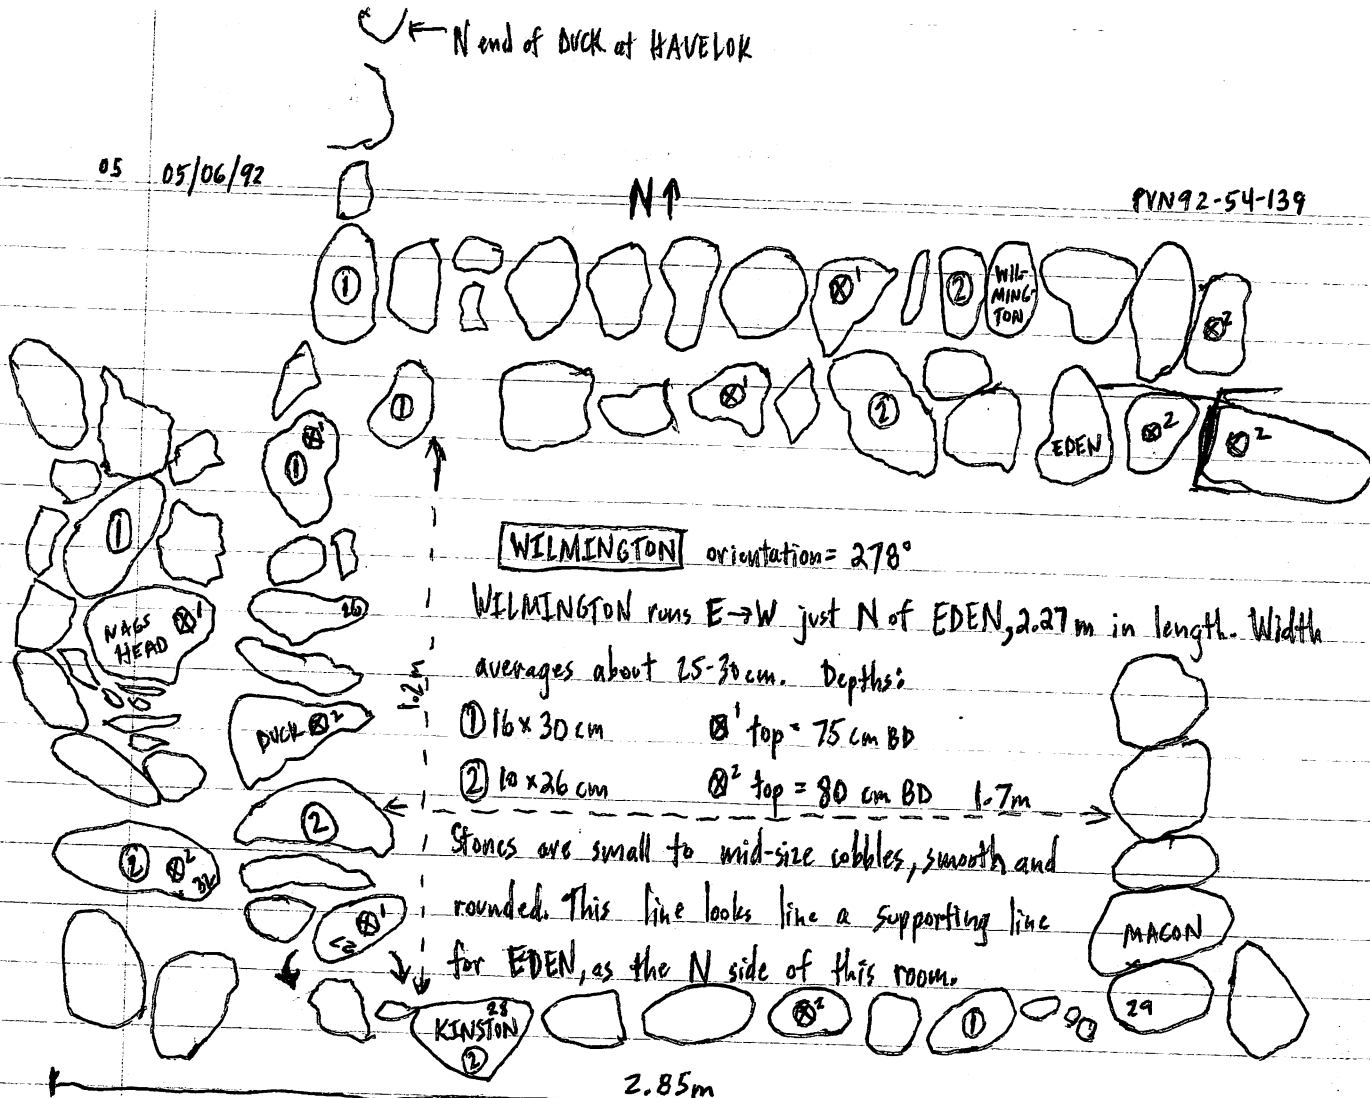 N end of DUCK at HAVELOK
05 05/06/92
N↑
PVN92-54-139
① ⊗¹ ② WIL-
MING-
TON ⊗²
① ⊗¹ ② EDEN ⊗² ⊗²
⊗¹
①
①
WILMINGTON orientation = 278°
26
WILMINGTON runs E→W just N of EDEN, 2.27 m in length. Width
NAGS
HEAD ⊗¹
averages about 25-30 cm. Depths:
1.2 m
DUCK ⊗²
① 16 x 30 cm ⊗¹ top = 75 cm BD
② 10 x 26 cm ⊗² top = 80 cm BD 1.7m
②
Stones are small to mid-size cobbles, smooth and
② ⊗² 32
rounded. This line looks line a supporting line
⊗¹ 27
MACON
for EDEN, as the N side of this room.
28
KINSTON
②
⊗² ① 29
2.85m